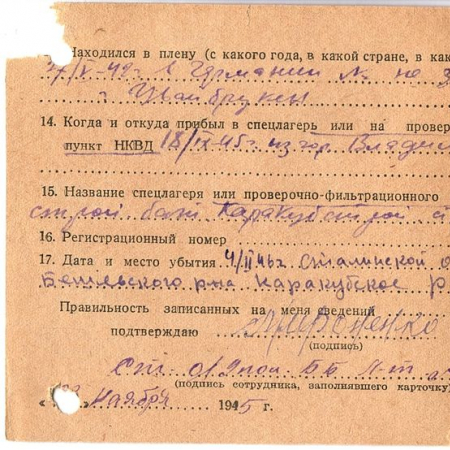 Находился в плену (с какого года, в какой стране, в как
Германии № не
Цвайбрукен
14. Когда и откуда прибыл в спецлагерь или на провер
пункт НКВД 18/IX 45 г из гор. Владим
15. Название спецлагеря или проверочно-фильтрационного
строй бат Каракубстрой
16. Регистрационный номер
17. Дата и место убытия 4/II 46 г Сталинской о
Бешевского р-на Каракубское р
Правильность записанных на меня сведений
подтверждаю Мироненко
(подпись)
Ст. л-т
(подпись сотрудника, заполнявшего карточку)
Ноября 1945 г.